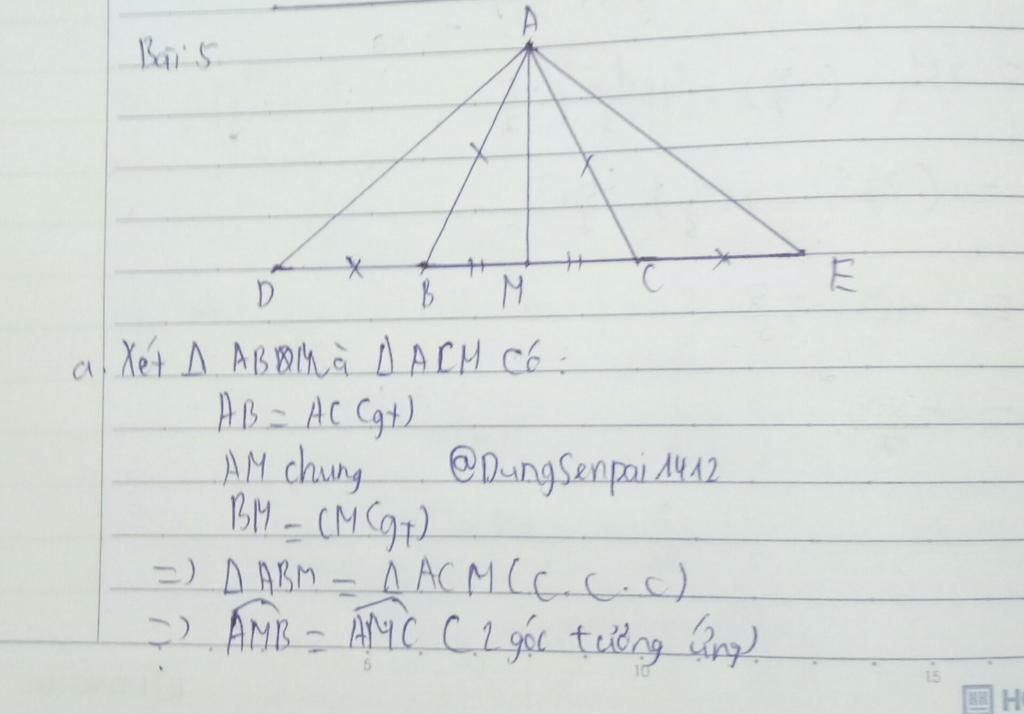 A
Bài 5
D B M C E
a. Xét Δ ABM và Δ ACM có:
AB = AC (gt)
AM chung @DungSenpai1412
BM = CM (gt)
=) Δ ABM = Δ ACM (c.c.c)
=) AMB = AMC (2 góc tương ứng)
5 10 15